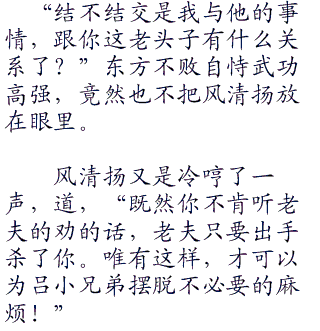 “结不结交是我与他的事
情，跟你这老头子有什么关
系了？”东方不败自恃武功
高强，竟然也不把风清扬放
在眼里。
风清扬又是冷哼了一
声，道，“既然你不肯听老
夫的劝的话，老夫只要出手
杀了你。唯有这样，才可以
为吕小兄弟摆脱不必要的麻
烦！”